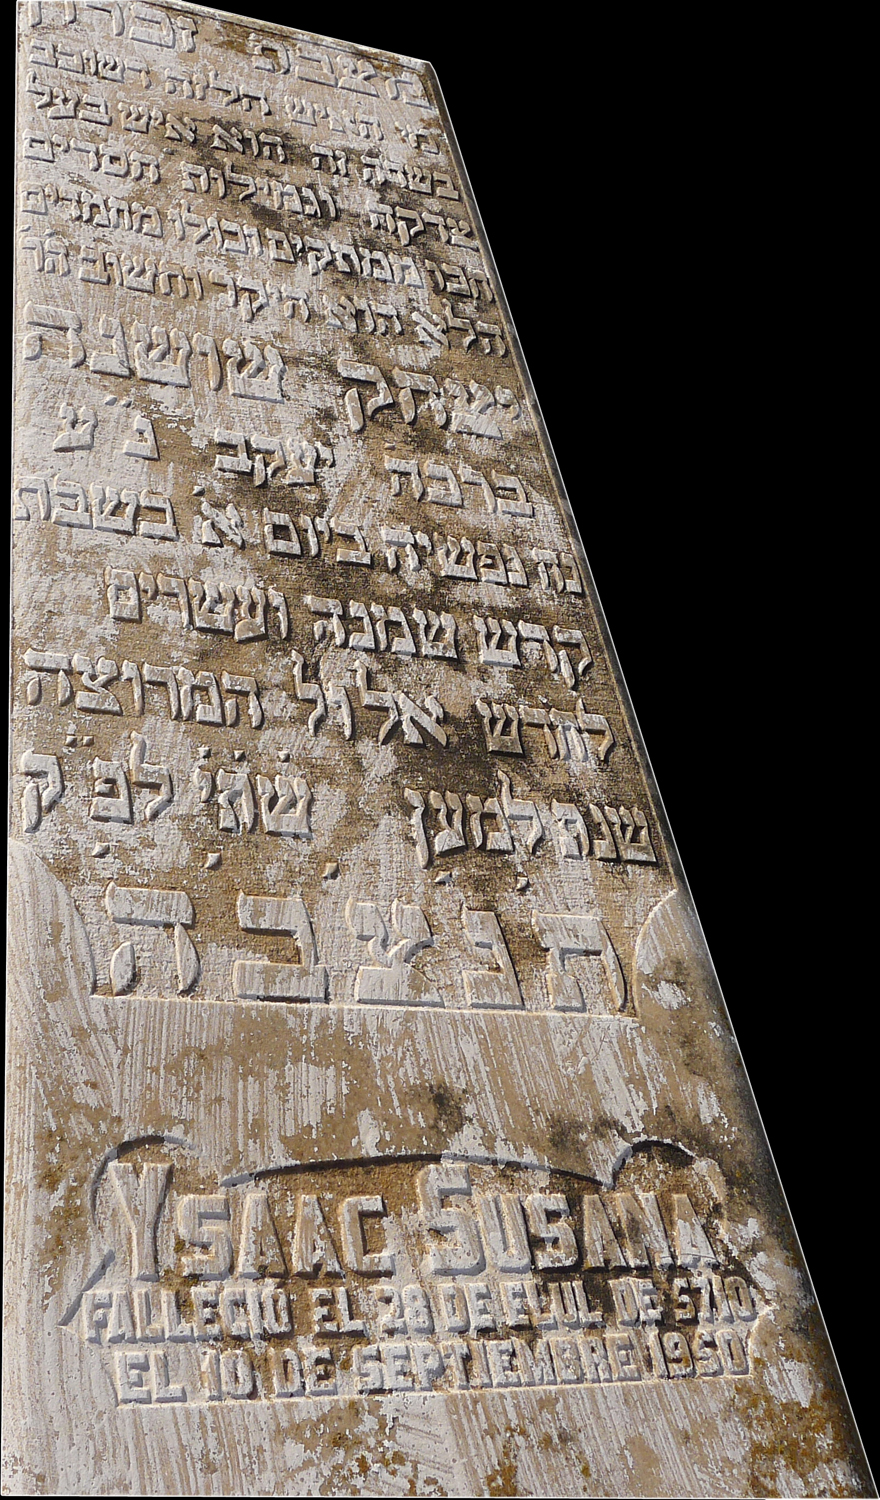 הציון הלזה ושוכב
זה הוא איש בעל
צדקה וגמילות חסדים
חכו ממתקים וכולו מחמדים
הלא הוא היקר וחשוב הר
יצחק שושנה
יעקב נ״ע
נח נפשיה ביום א׳ בשבת
קדש שמנה ועשרים
לחדש אלול המרוצה
שנת למען לפ״ק
ת׳נ׳צ׳ב׳ה׳
YSAC SUSANA
FALLECIO EL 28 DE ELUL DE 5710
EL 10 DE SEPTIEMBRE 1950